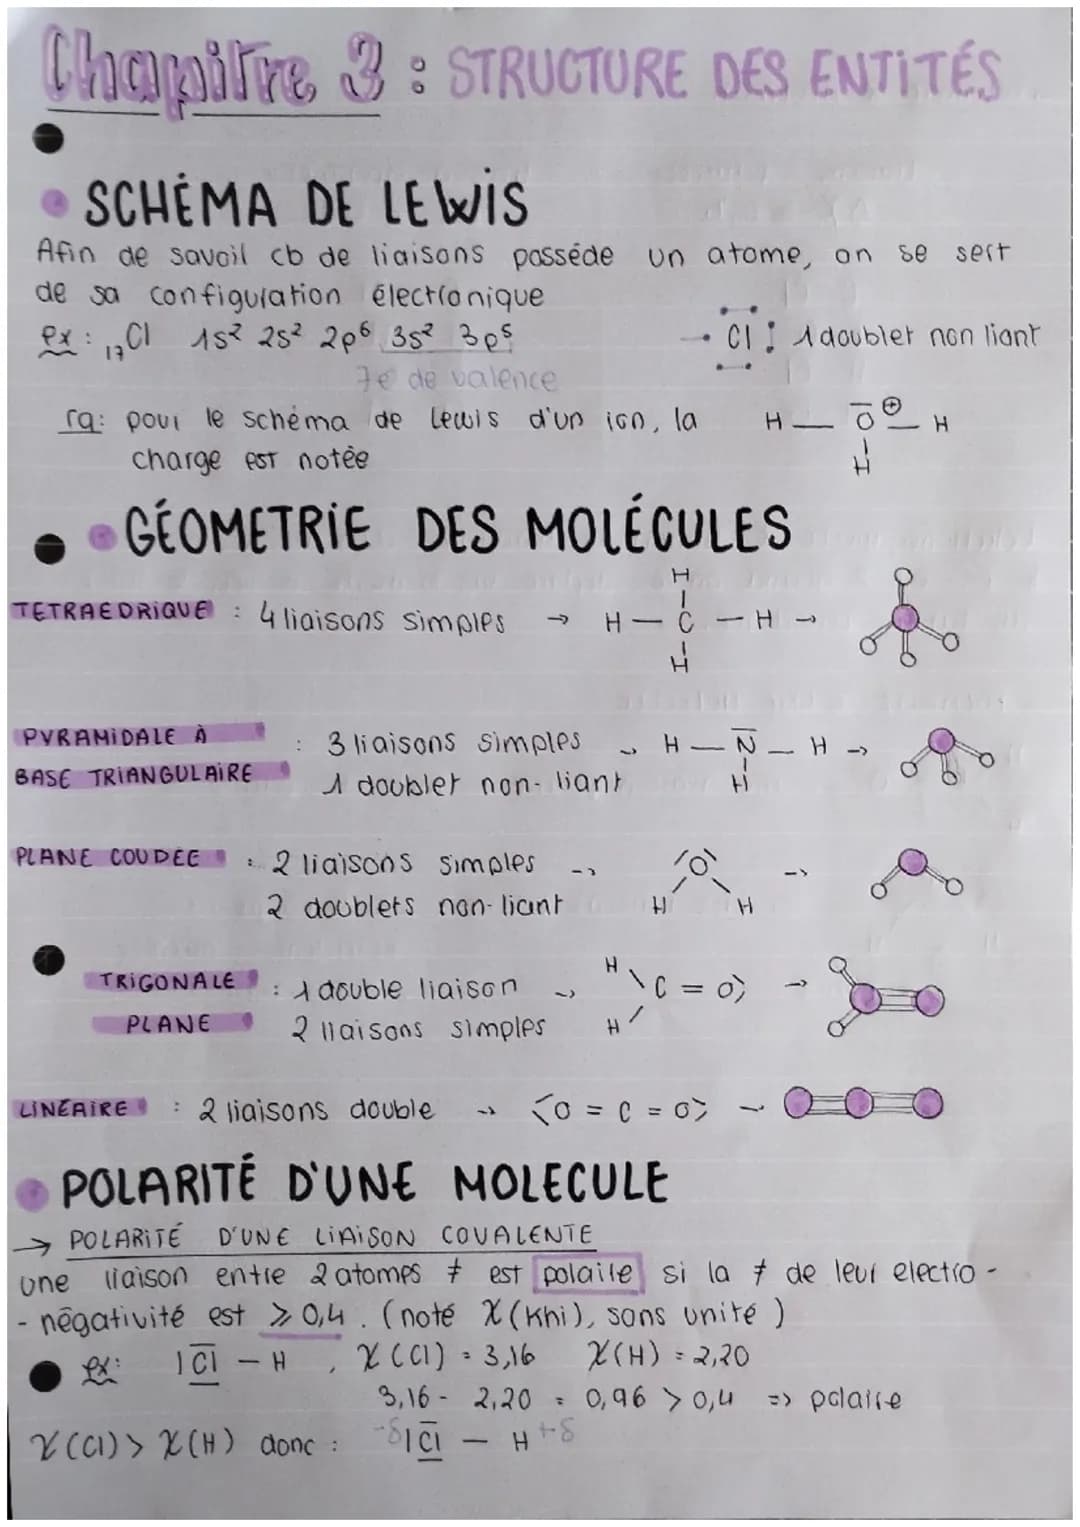 Chapitre 3 : STRUCTURE DES ENTITÉS
SCHÉMA DE LEWIS
Afin de savoir cb de liaisons posséde un atome, on se sert
de sa configuration électronique
ex : 17Cl 1s² 2s² 2p⁶ 3s² 3p⁵ → Cl 1 doublet non liant
7e de valence
rq: pour le schéma de Lewis d'un ion, la H — O⊕ — H
charge est notée H
GÉOMETRIE DES MOLÉCULES
H
TETRAEDRIQUE : 4 liaisons simples → H — C — H →
H
PYRAMIDALE À : 3 liaisons simples → H — N — H →
BASE TRIANGULAIRE 1 doublet non-liant H
PLANE COUDÉE : 2 liaisons simples → O →
2 doublets non-liant H H
TRIGONALE : 1 double liaison → H C = O →
PLANE 2 liaisons simples H
LINÉAIRE : 2 liaisons double → ⟨O = C = O⟩ →
POLARITÉ D'UNE MOLECULE
→ POLARITÉ D'UNE LIAISON COVALENTE
une liaison entre 2 atomes ≠ est polaire si la ≠ de leur electro-
-négativité est ⩾ 0,4. (noté χ (khi), sans unité)
ex: |Cl — H , χ(Cl) = 3,16 χ(H) = 2,20
3,16 - 2,20 = 0,96 > 0,4 => polaire
χ(Cl) > χ(H) donc : -δ |Cl — H +δ